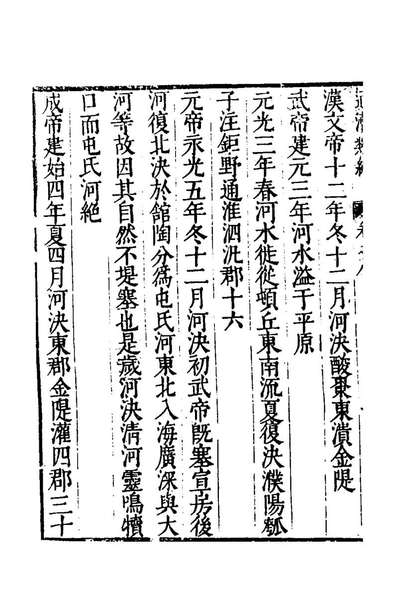 漢文帝十二年冬十二月河決酸棗東潰金隄
武帝建元三年河水溢于平原
元光三年春河水徙從頓丘東南流夏復決濮陽瓠
子注鉅野通淮泗汎郡十六
元帝永光五年冬十二月河決初武帝旣塞宣房後
河復北決於館陶分爲屯氏河東北入海廣深與大
河等故因其自然不堤塞也是歲河決清河靈鳴犢
口而屯氏河絶
成帝建始四年夏四月河決東郡金隄灌四郡三十